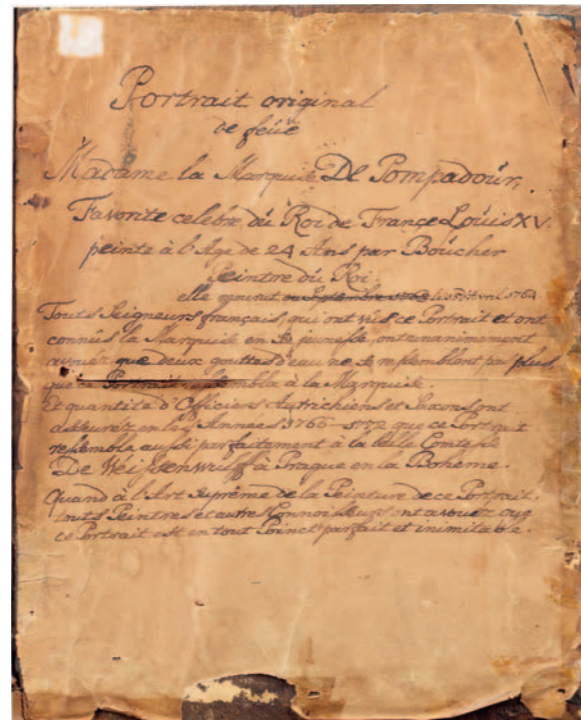 Portrait original
de feüe
Madame la Marquise De Pompadoür,
Favorite celebre dü Roi de France Loüis XV.
peinte à l'Age de 24 Ans par Boücher
Peintre dü Roi.
elle mourut en Septembre 1763 le 15 Avril 1764.
Touts Seigneurs français, qui ont vüs ce Portrait et ont
connüs la Marquise en sa jeunesse, ont unanimement
avouez que deux gouttes d'eau ne se ressemblent pas plus,
que ce Portrait ressembla à la Marquise.
Et quantité d'Officiers Autrichiens et Saxons ont
asseurez en les Années 1766 1772 que ce Portrait
ressemble aussi parfaitement à la belle Comtesse
De Weissenwulff à Prague en la Boheme.
Quand à l'Art Suprême de la Peinture de ce Portrait,
touts Peintres et autres Connoisseurs ont avouez que
ce Portrait est en tout Poinct parfait et inimitable.